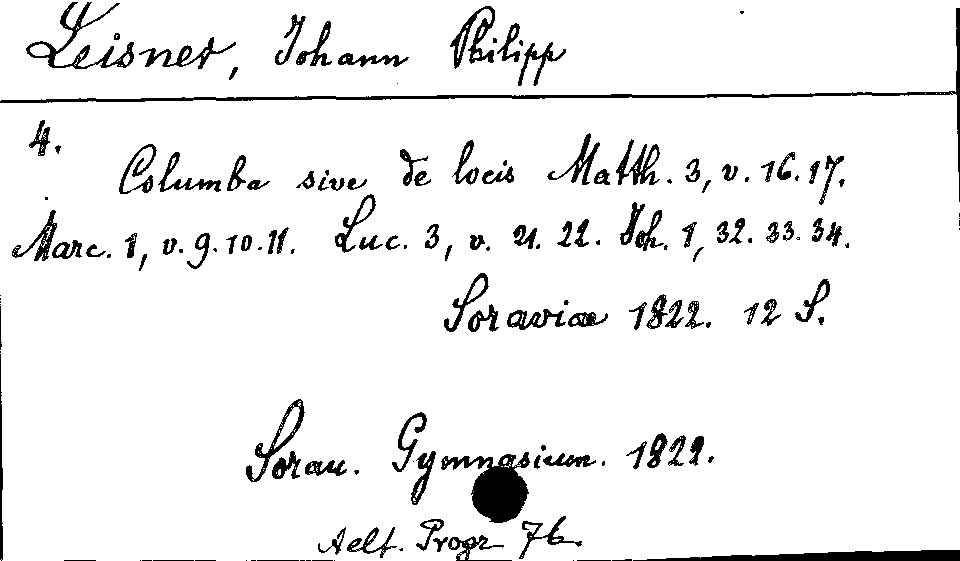 Leisner, Johann Philipp
4.
Columba sive de locis Matth. 3, v. 16. 17.
Marc. 1, v. 9. 10. 11. Luc. 3, v. 21. 22. Joh. 1, 32. 33. 34.
Soraviae 1822. 12 S.
Sorau. Gymnasium. 1822.
Aelt. Progr. 76.